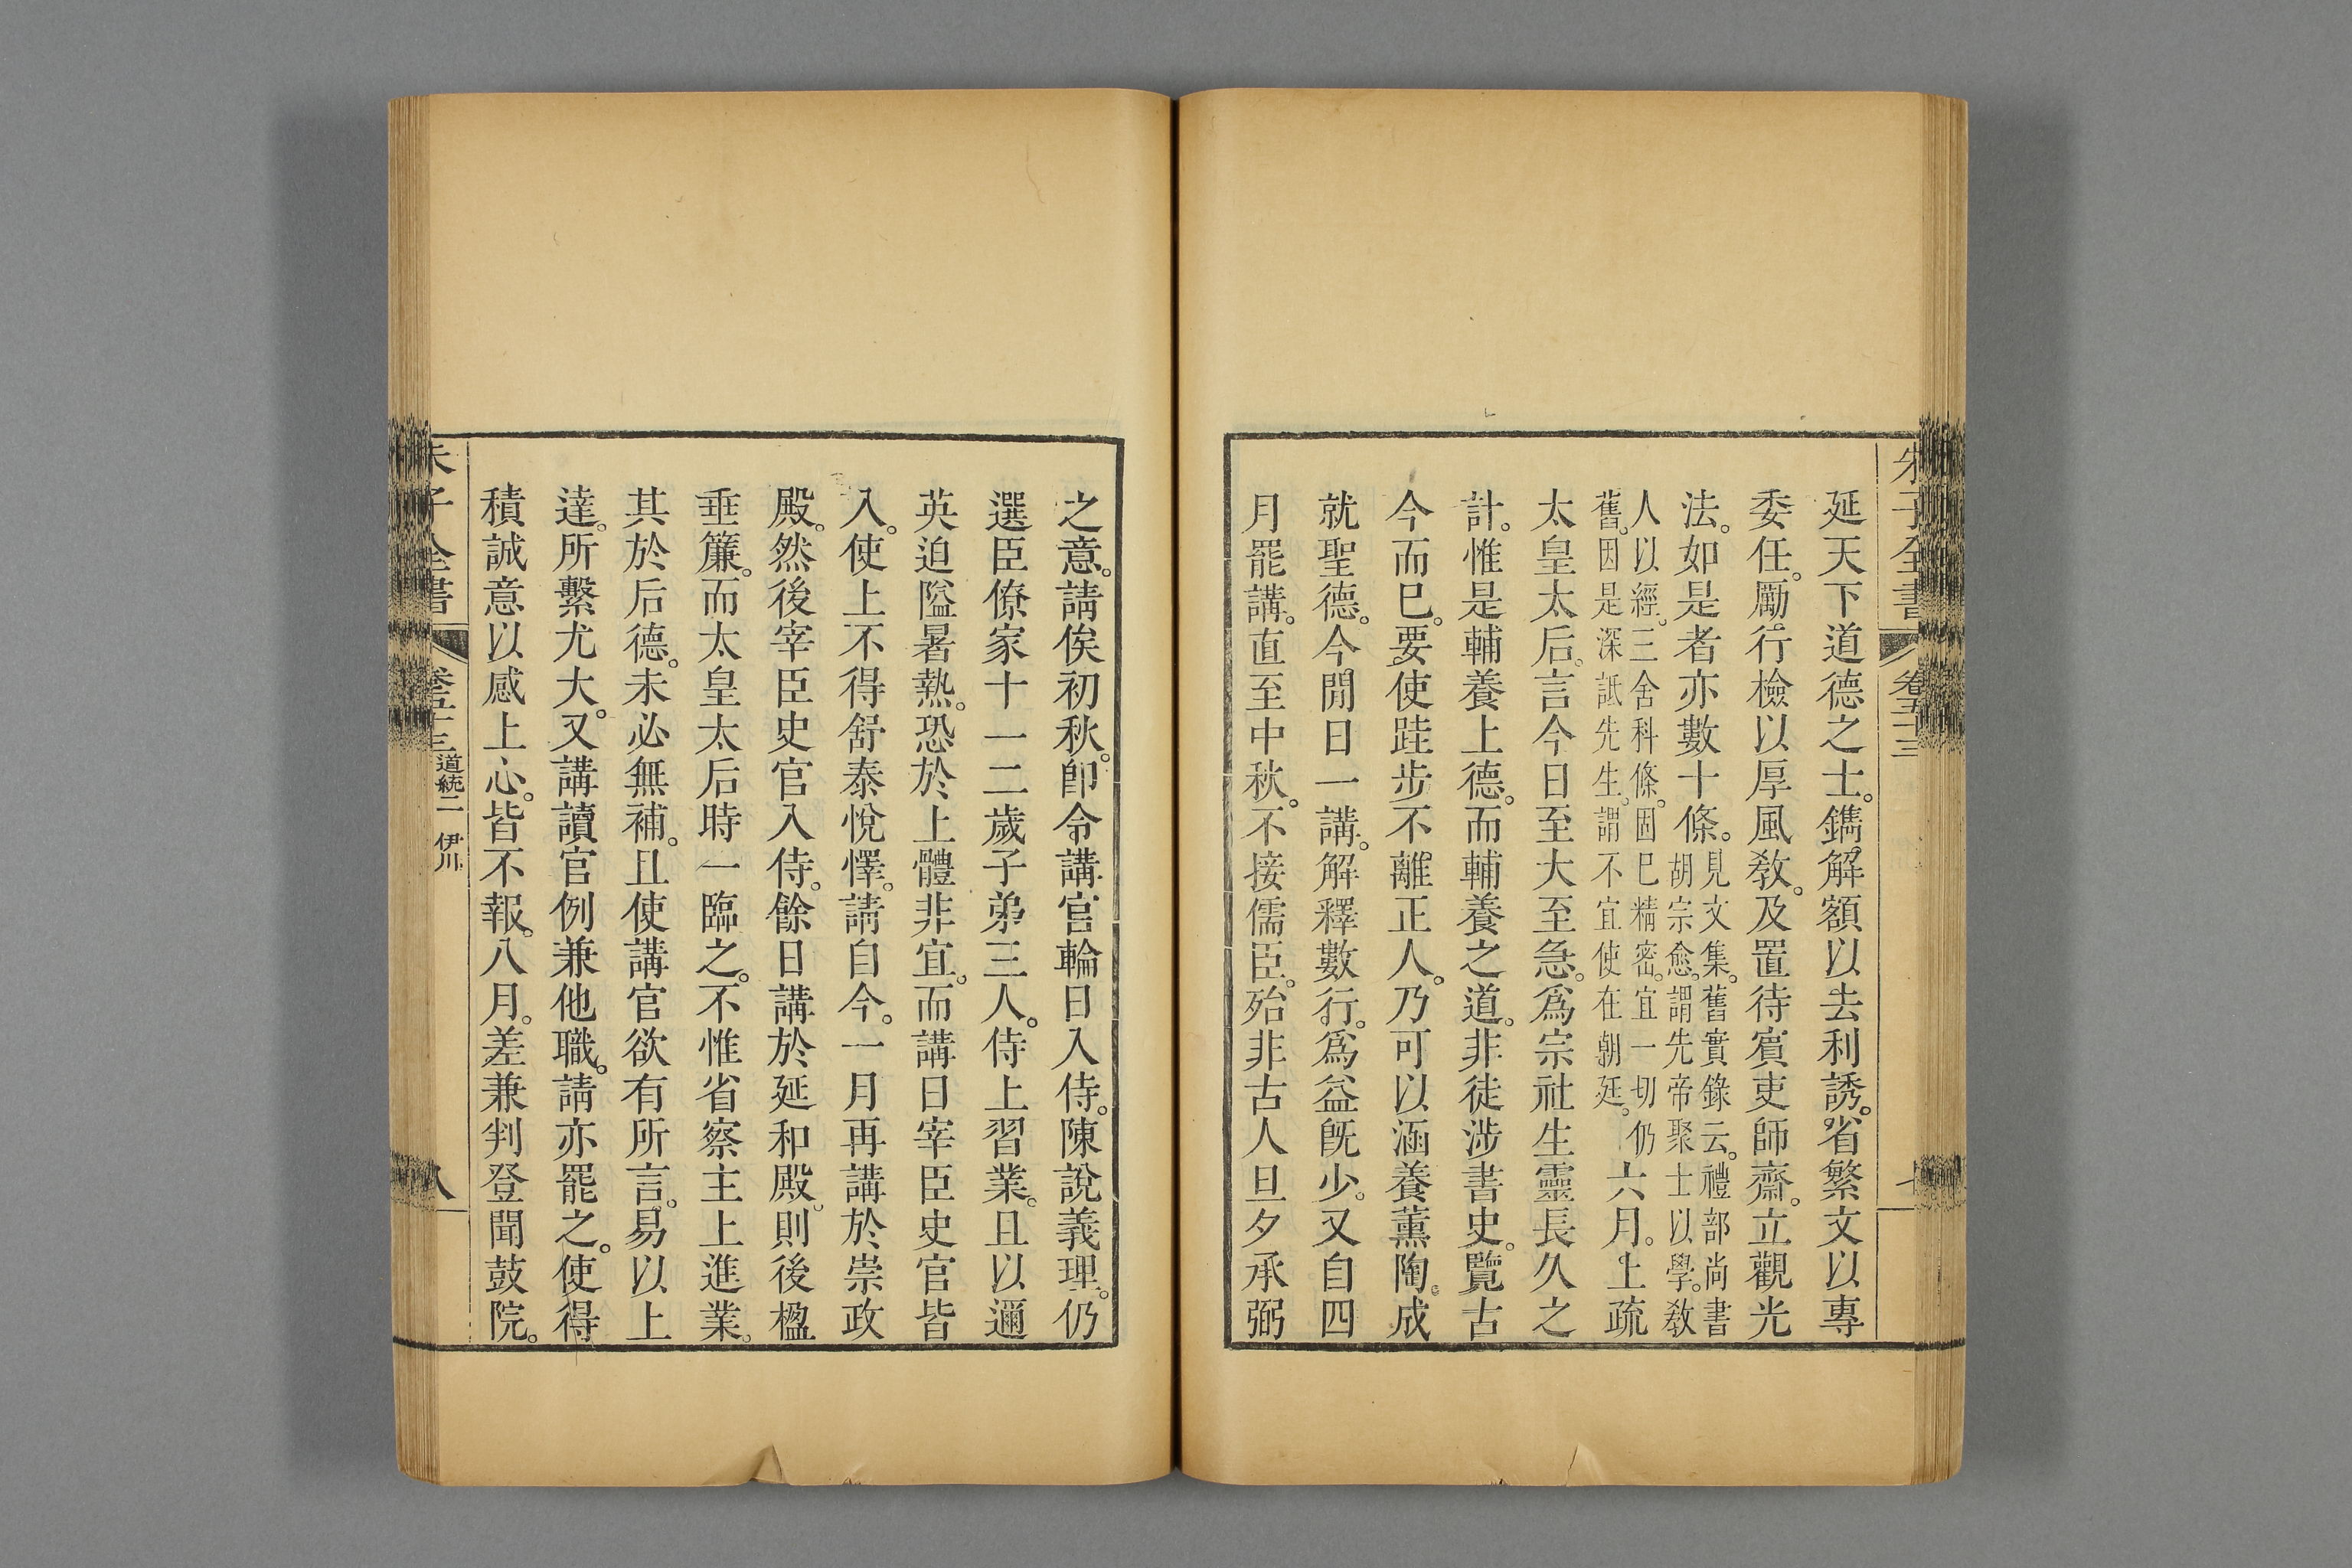 朱子全書 卷五十三
延天下道德之士。鐫解額以去利誘。省繁文以專
委任。勵行檢以厚風敎。及置待賓吏師齋。立觀光
法。如是者亦數十條。見文集。舊實錄云。禮部尚書
胡宗愈。謂先帝聚士以學。敎
人以經。三舍科條。固已精密。宜一切仍
舊。因是深詆先生。謂不宜使在朝廷。六月。上疏
太皇太后。言今日至大至急。爲宗社生靈長久之
計。惟是輔養上德。而輔養之道。非徒涉書史。覽古
今而已。要使跬步不離正人。乃可以涵養薰陶。成
就聖德。今閒日一講。解釋數行。爲益旣少。又自四
月罷講。直至中秋。不接儒臣。殆非古人旦夕承弼
之意。請俟初秋。卽令講官輪日入侍。陳說義理。仍
選臣僚家十一二歲子弟三人。侍上習業。且以邇
英迫隘暑熱。恐於上體非宜。而講日宰臣史官皆
入。使上不得舒泰悅懌。請自今。一月再講於崇政
殿。然後宰臣史官入侍。餘日講於延和殿。則後楹
垂簾。而太皇太后時一臨之。不惟省察主上進業。
其於后德。未必無補。且使講官欲有所言。易以上
達。所繫尤大。又講讀官例兼他職。請亦罷之。使得
積誠意以感上心。皆不報。八月。差兼判登聞鼓院。
朱子全書 卷五十三 道統二 伊川 八